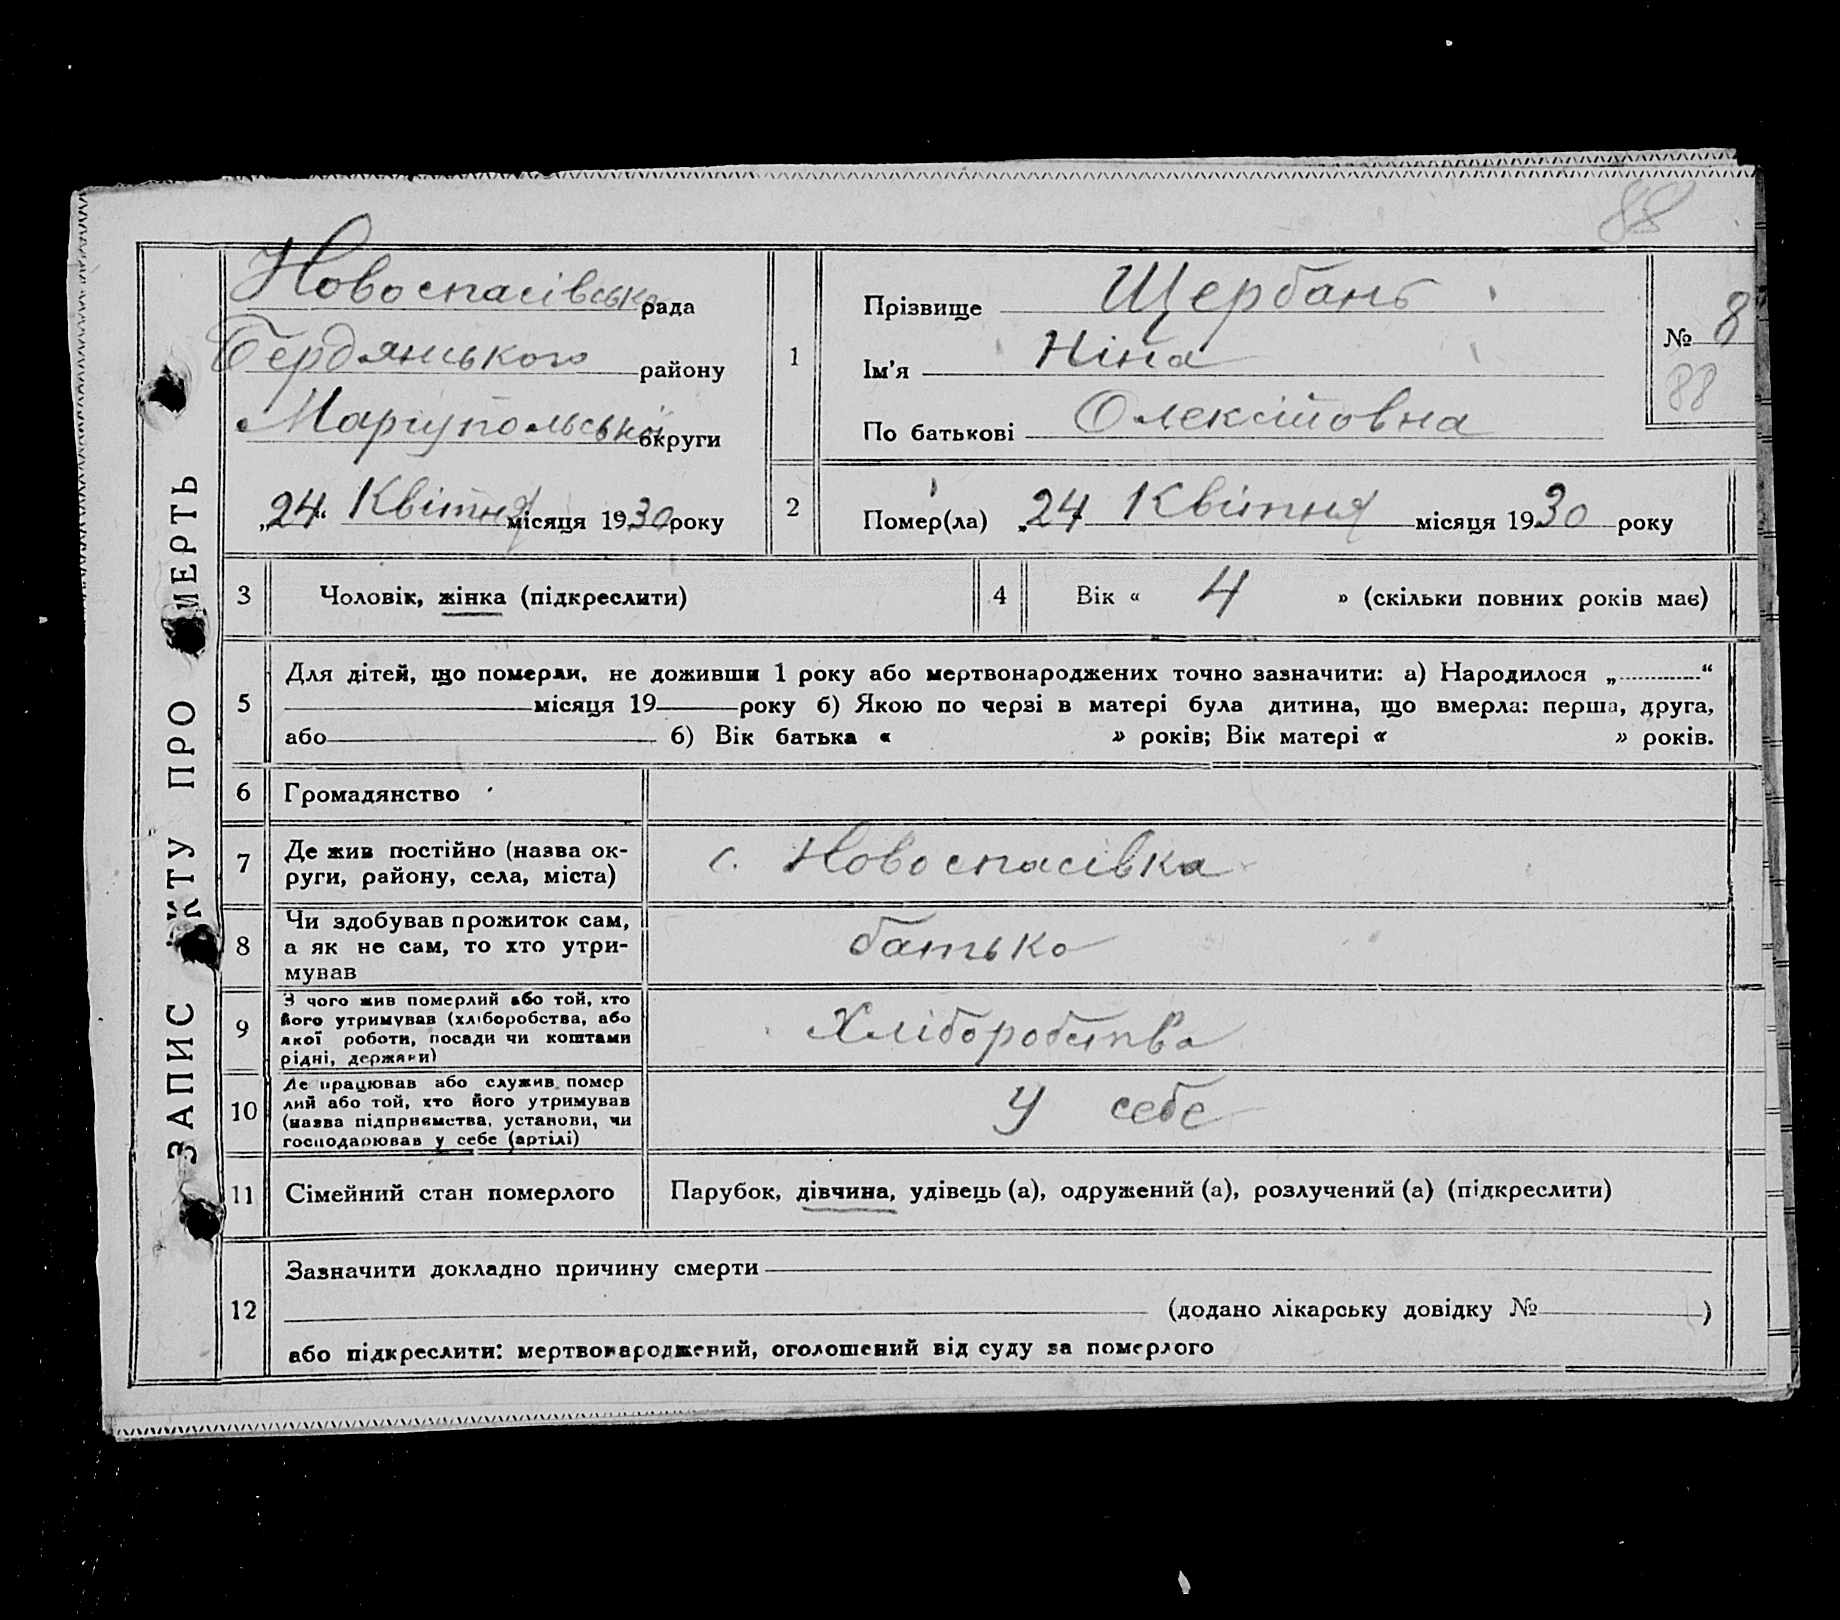 88
ЗАПИС АКТУ ПРО СМЕРТЬ
Новоспасівська рада
Бердянського району
Маріупольської округи
„24“ Квітня місяця 1930 року
1
Прізвище Щербань
Ім'я Ніна
По батькові Олексійовна
№ 8
88
2
Помер(ла) „24 Квітня місяця 1930 року
3 Чоловік, жінка (підкреслити)
4 Вік « 4 » (скільки повних років має)
5 Для дітей, що померли, не доживши 1 року або мертвонароджених точно зазначити: а) Народилося „............“
місяця 19 року б) Якою по черзі в матері була дитина, що вмерла: перша, друга,
або б) Вік батька « » років; Вік матері « » років.
6 Громадянство
7 Де жив постійно (назва ок-
руги, району, села, міста)
с. Новоспасівка
8 Чи здобував прожиток сам,
а як не сам, то хто утри-
мував
батько
9 З чого жив померлий або той, хто
його утримував (хліборобства, або
якої роботи, посади чи коштами
рідні, держави)
Хліборобства
10 Де працював або служив помер
лий або той, хто його утримував
(назва підприємства, установи, чи
господарював у себе (артілі)
У себе
11 Сімейний стан померлого
Парубок, дівчина, удівець (а), одружений (а), розлучений (а) (підкреслити)
12 Зазначити докладно причину смерти
(додано лікарську довідку № )
або підкреслити: мертвонароджений, оголошений від суду за померлого